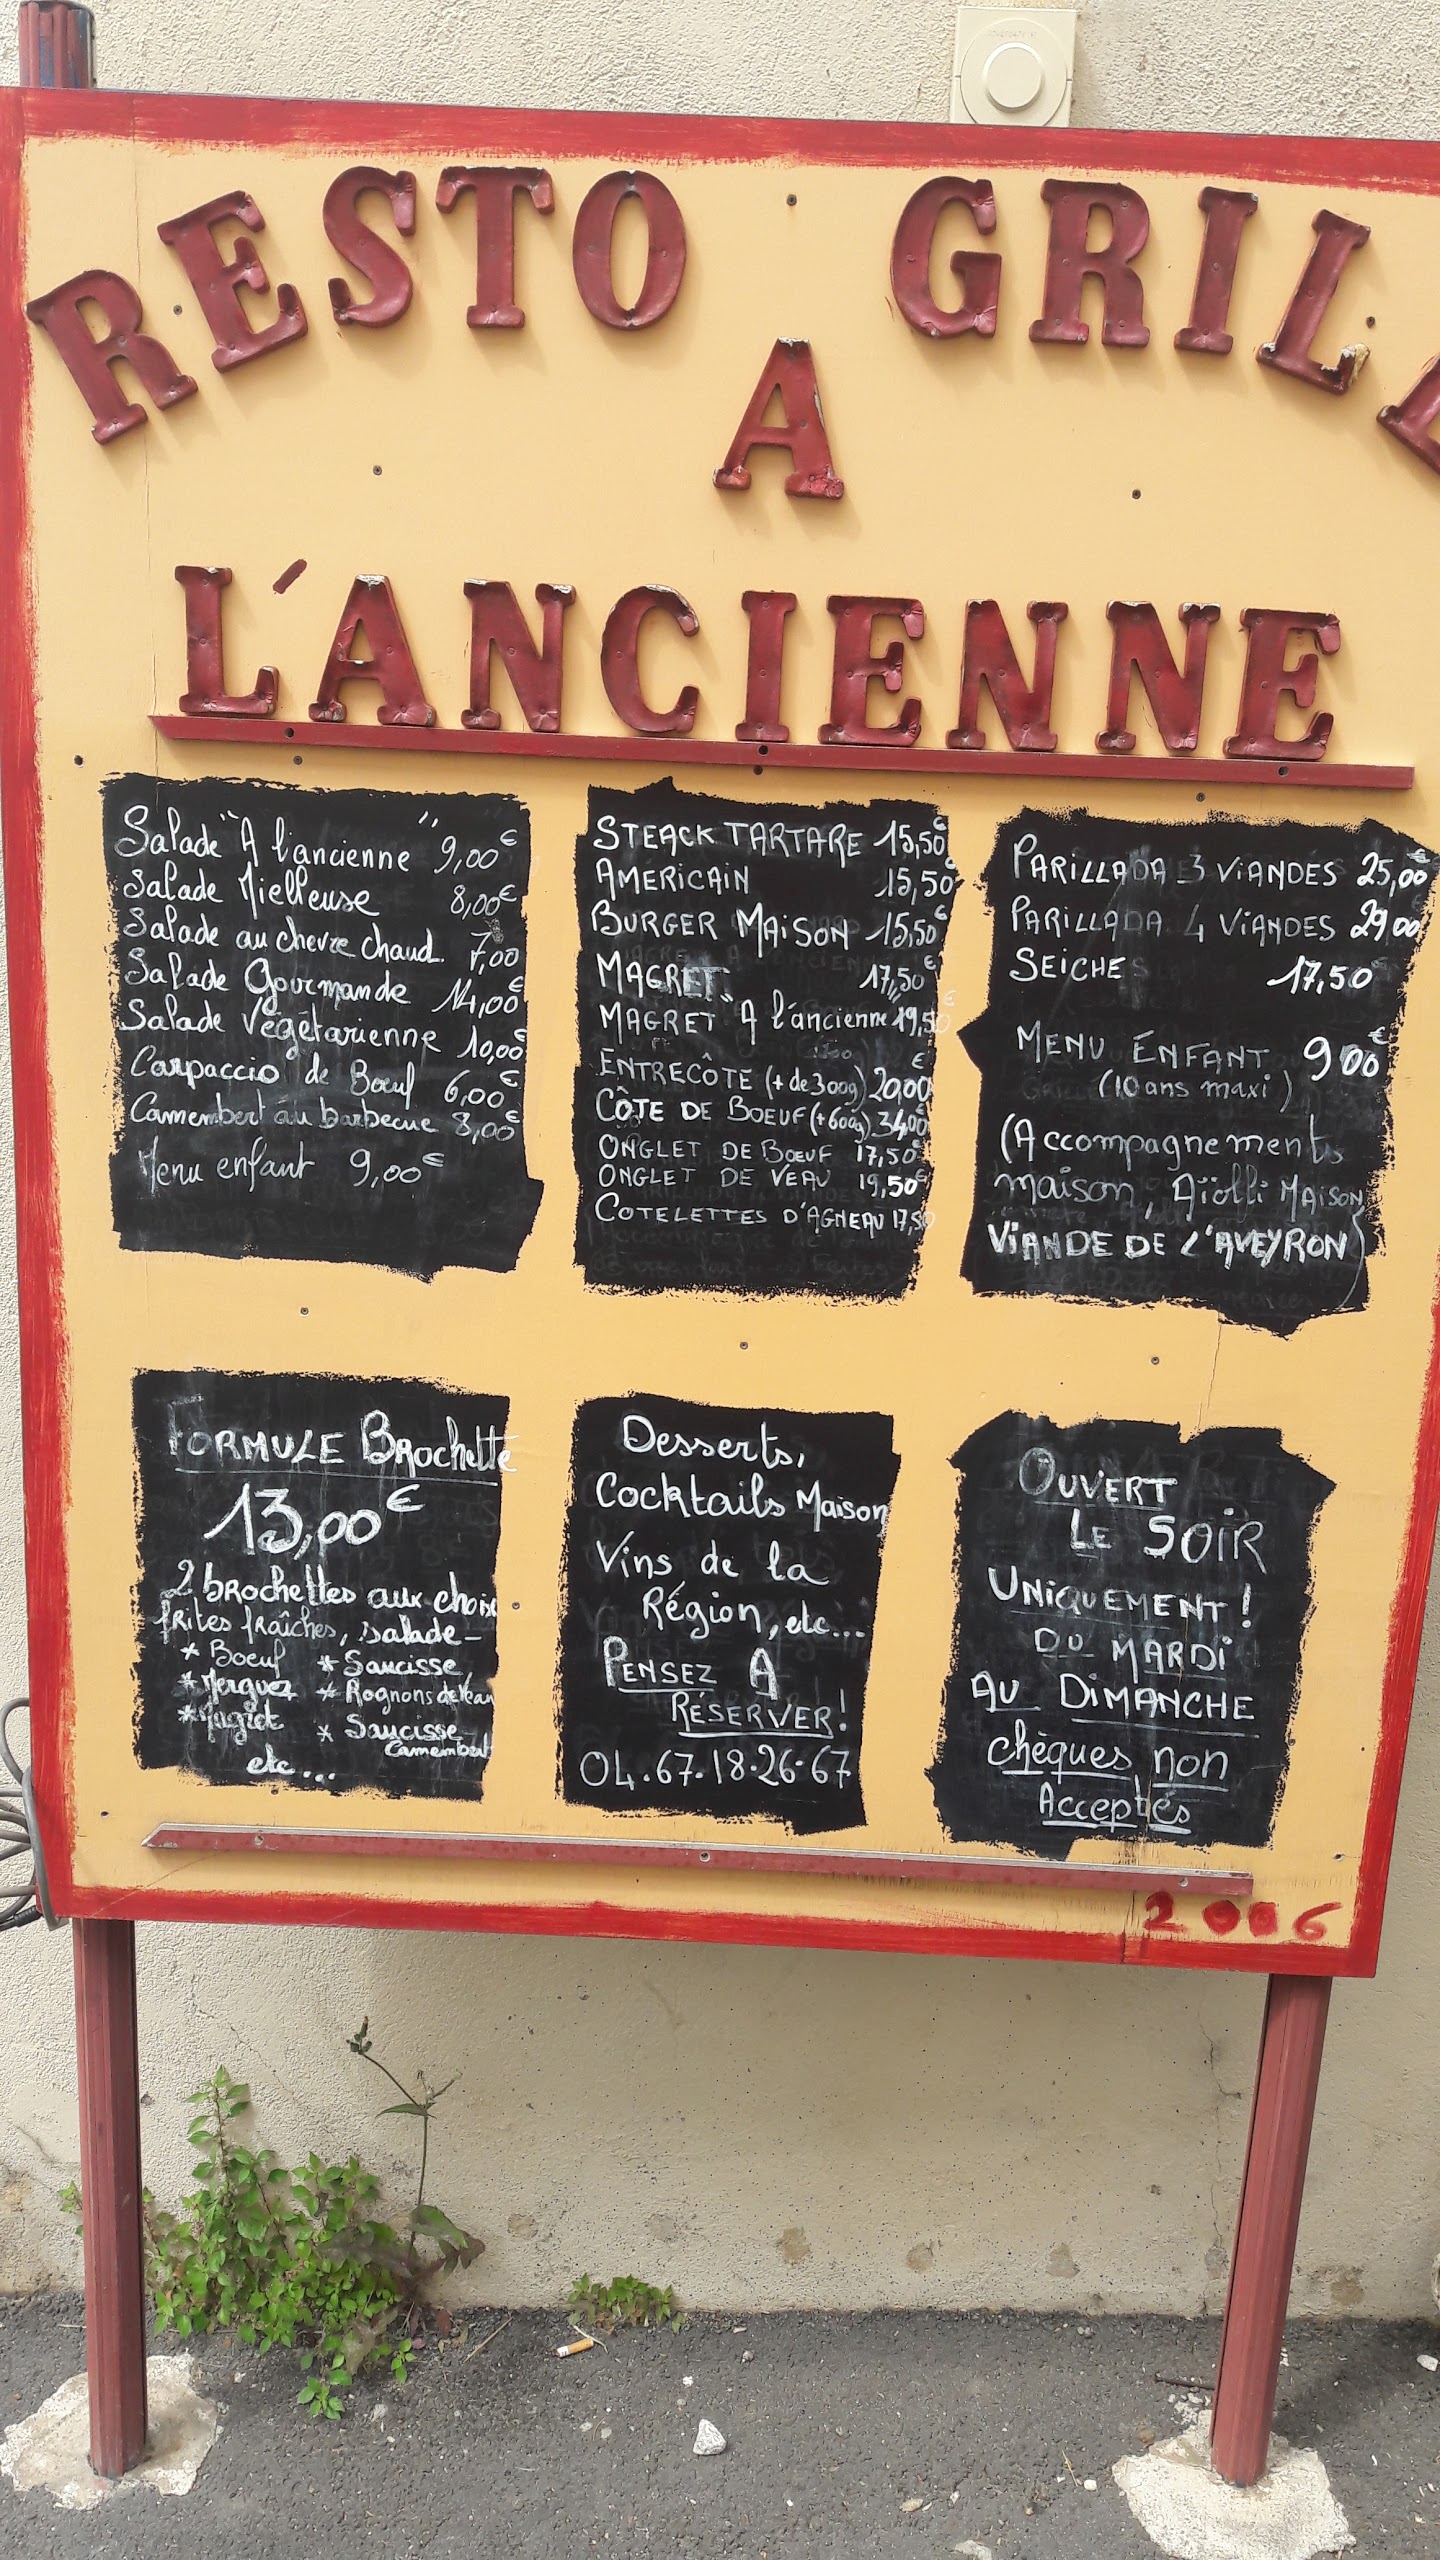 RESTO GRILL
A
L'ANCIENNE
Salade "A l'ancienne" 9,00€
Salade Mielleuse 8,00€
Salade au chevre chaud. 7,00
Salade Gourmande 14,00€
Salade Végétarienne 10,00€
Carpaccio de Boeuf 6,00€
Camembert au barbecue 8,00€
Menu enfant 9,00€
STEACK TARTARE 15,50€
AMERICAIN 15,50€
BURGER MAISON 15,50€
MAGRET 17,50€
MAGRET "A l'ancienne" 19,50€
ENTRECÔTE (+ de 300g) 20,00€
CÔTE DE BOEUF (+600g) 34,00€
ONGLET DE BOEUF 17,50€
ONGLET DE VEAU 19,50€
COTELETTES D'AGNEAU 17,50
PARILLADA 3 VIANDES 25,00€
PARILLADA 4 VIANDES 29,00€
SEICHE 17,50€
MENU ENFANT 9,00€
(10 ans maxi)
(Accompagnements
maison, Aïolli MAISON
VIANDE DE L'AVEYRON)
FORMULE BROchette
13,00€
2 bROchettes aux choix
frites fraîches, salade-
* Boeuf * Saucisse,
* Merguez * Rognons de Veau
* Magret * Saucisse
Camembert
etc...
Desserts,
Cocktails Maison
Vins de la
Région, etc...
PENSEZ A
RÉSERVER!
04.67.18.26.67
OUVERT
LE SOIR
UNIQUEMENT!
DU MARDI
AU DIMANCHE
chèques non
Acceptés
2006